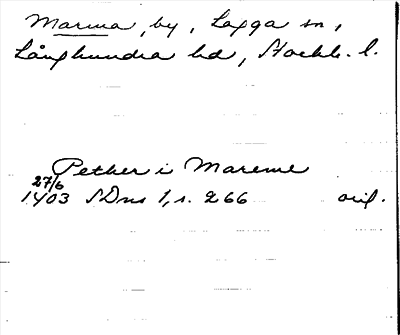 Marma, by, Lagga sn,
Långhundra hd, Stockh. l.
Pether i Mareme
27/6
1403 SDns 1, s. 266 orig.